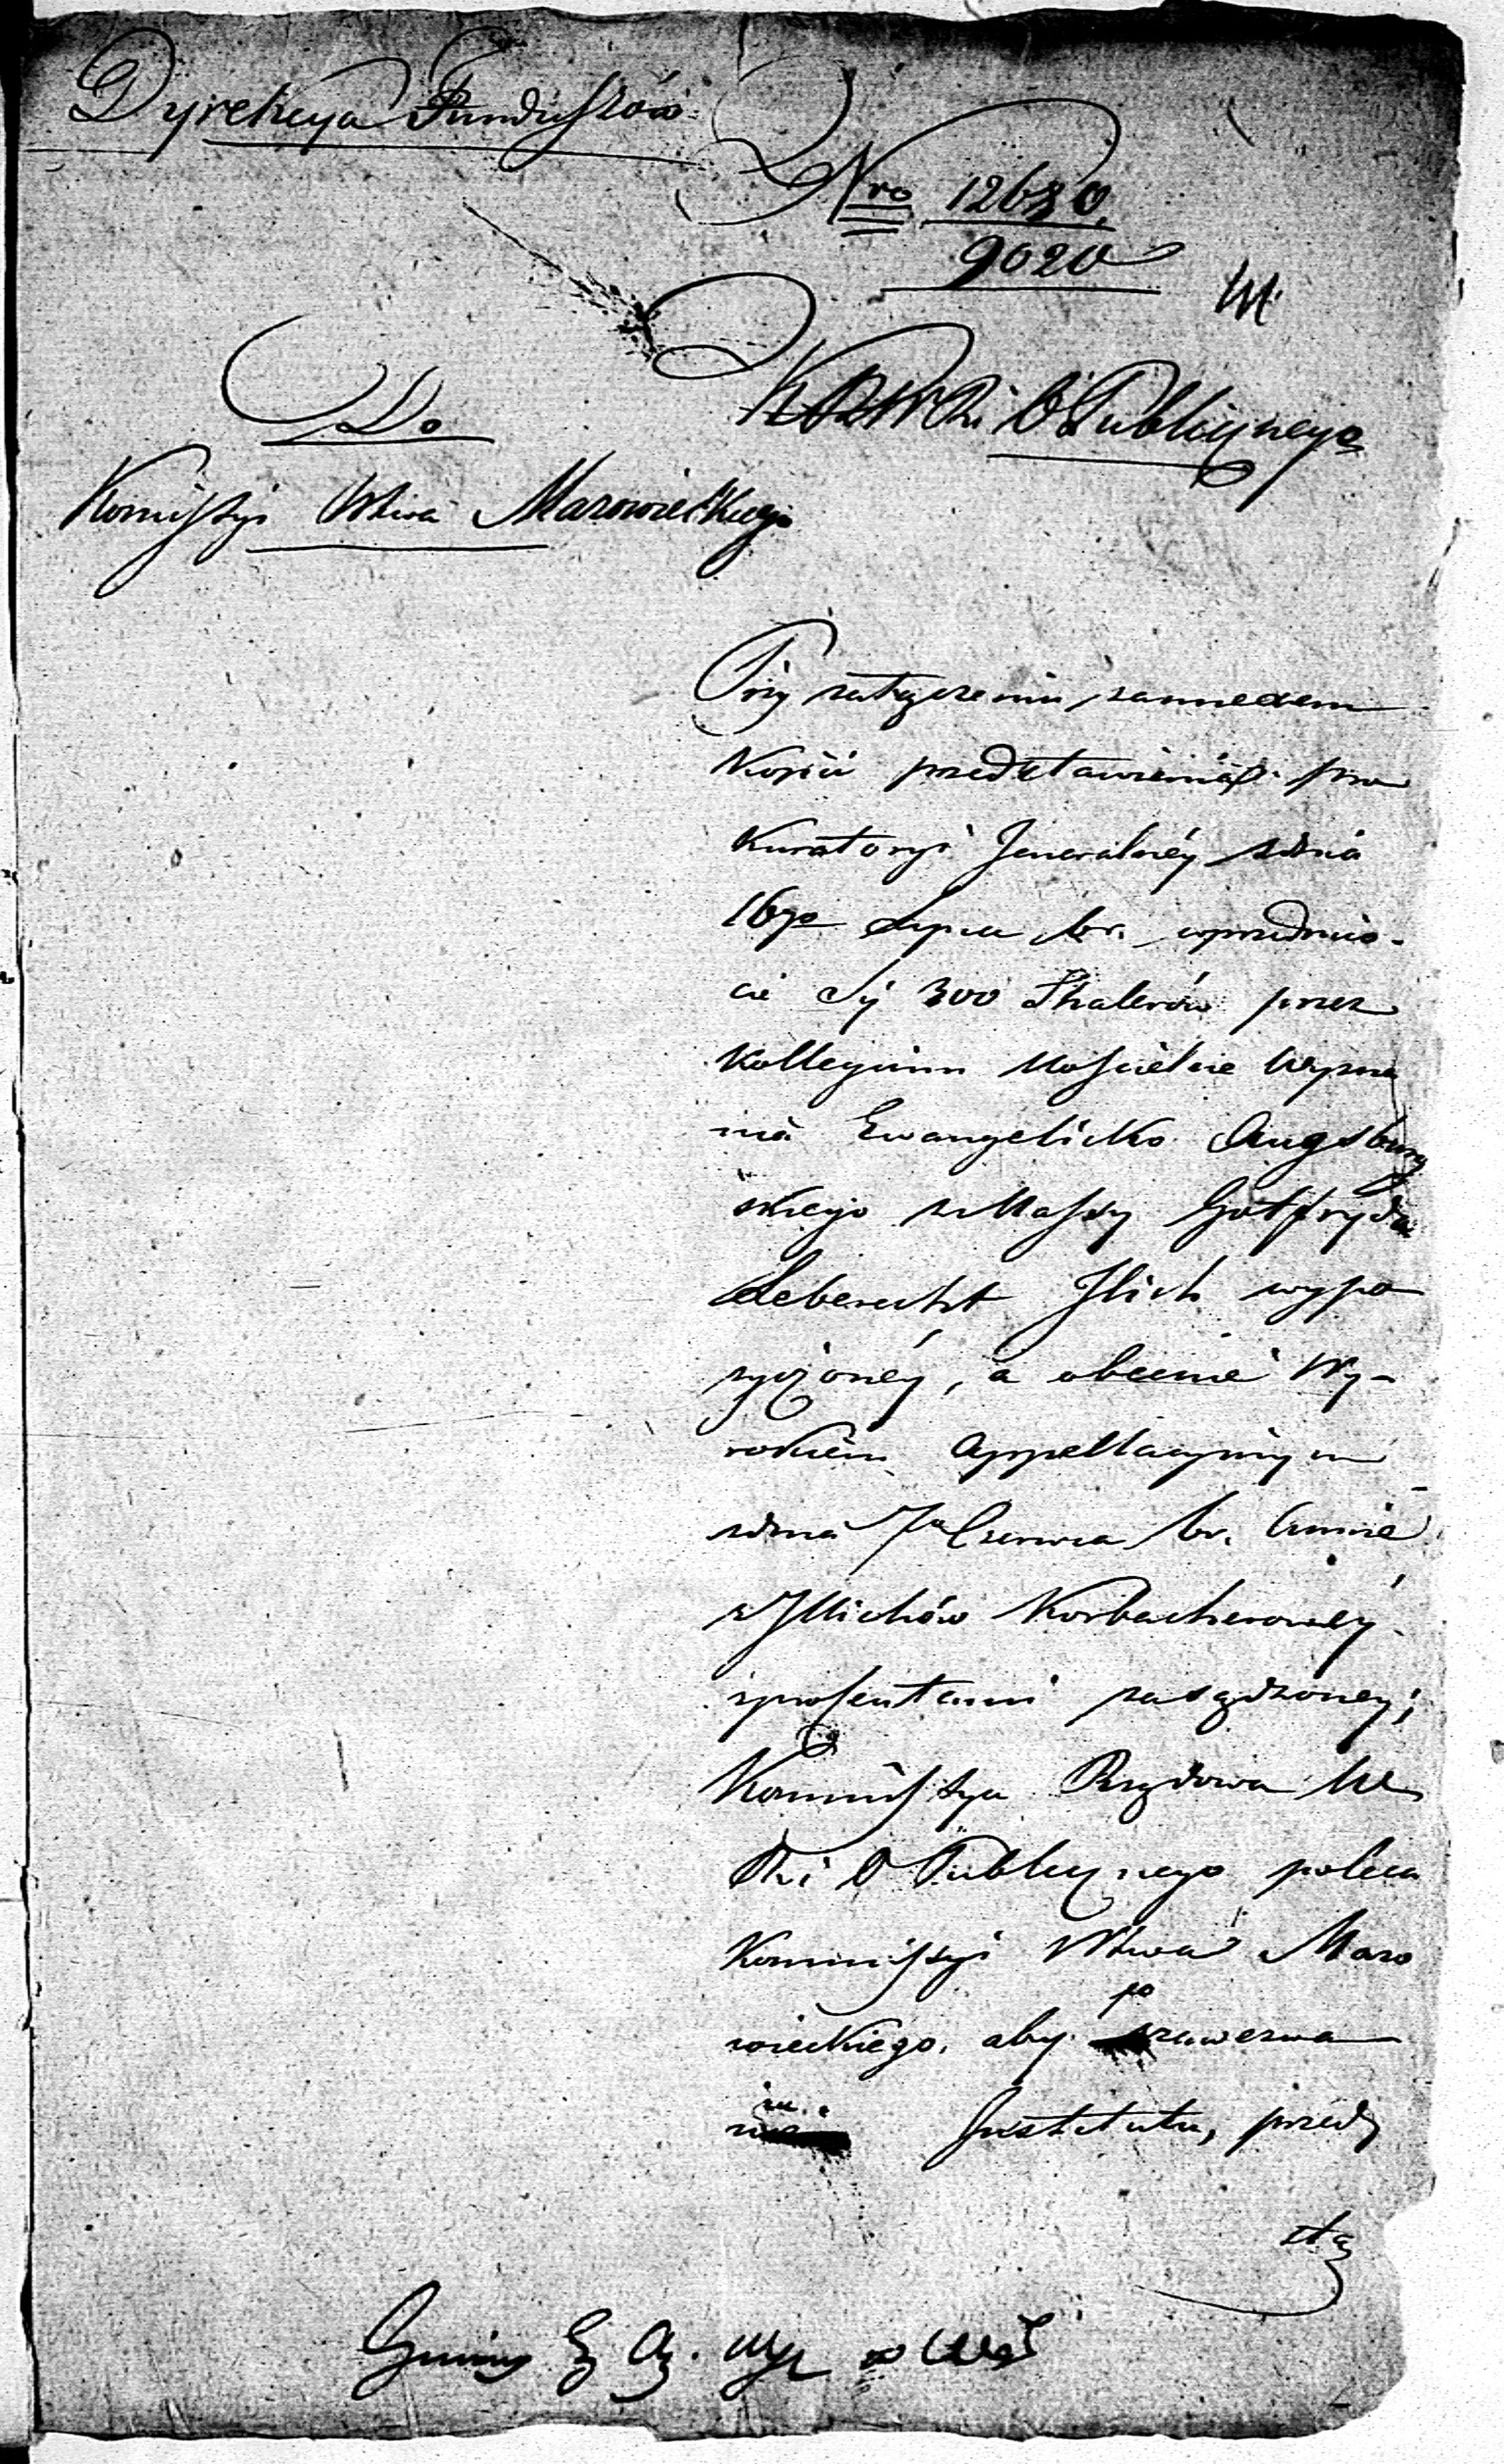 Dyrekcya Funduszów
Nro 12630.
9020
Do
K R W R i O Publicznego
Komissyi Wtwa Mazowieckiego
Przy załączeniu zannexem
Kopii przedstawienia Pro
kuratoryi Jeneralnéy zdnia
16go Lipca br. wprzedmio-
cie Sy 300 Thalerów przez
Kollegium Kościelne Wyzna
nia Ewangelicko Augsburg
skiego z Massy Gotfryda
Leberecht Jlich wypo
życzonéy, a obecnie Wy-
rokiem Appellacyinym
zdnia 7o Czerwca br. Annie
z Jllichów Korbacherowéy
zprocentami zasądzonéy;
Kommissya Rządowa W
R i O Publicznego poleca
Kommissyi Wtwa Mazo
wieckiego, aby po wezwa
niu Instytutu, przed
sta
Gminy E A. Wyz w